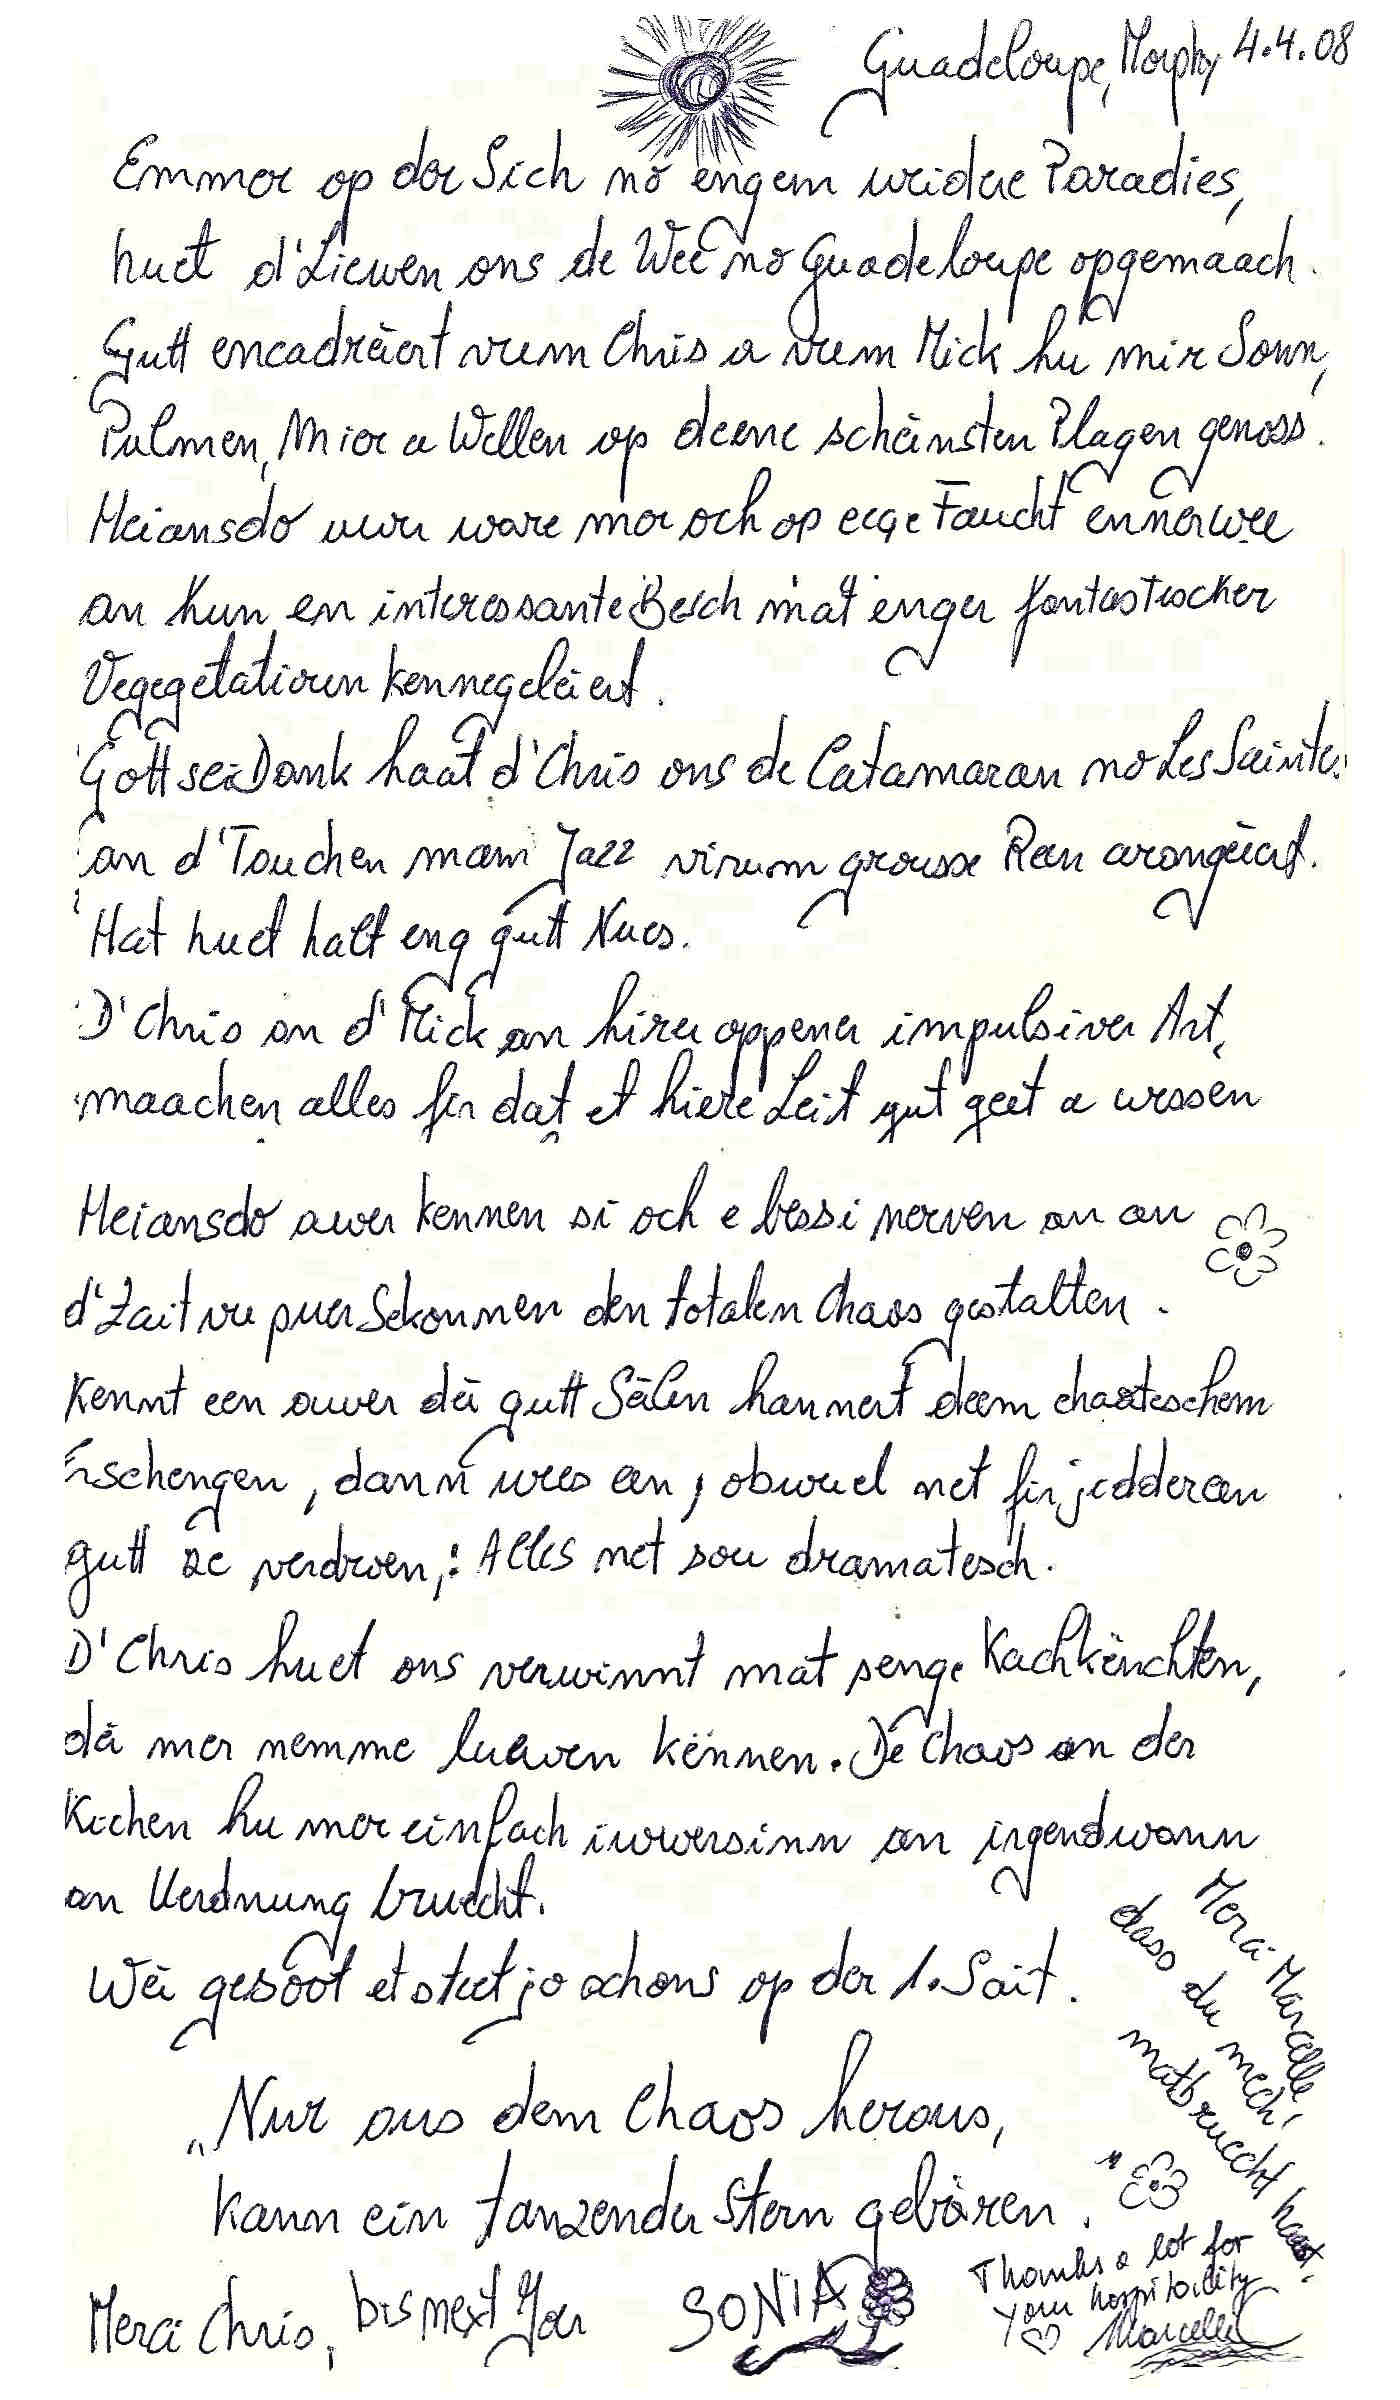 Guadeloupe, Morphy 4.4.08
Emmer op der Sich no engem weidere Paradies,
huet d'Liewen ons de Wee no Guadeloupe opgemaach.
Gutt encadréiert vum Chris a vum Mick hu mir Sonn,
Palmen, Mier a Wellen op deene schéinsten Plagen genoss.
Heiansdo awer ware mer och op eege Faucht ennerwee
an hun en interessante Besch mat enger fantastischer
Vegegetatioun kennegeléiert.
Gott sei Dank haat d'Chris ons de Catamaran no Les Saintes
an d'Touchen mam Jazz virum grousse Reen arongéiert.
Hat huet halt eng gutt Nues.
D'Chris an d'Mick an hirer oppener impulsiver Art,
maachen alles fir dat et hiere Leit gut geet a wessen
Heiansdo awer kennen si och e bessi nerven an an
d'Zait vu puer Sekonnen den totalen Chaos gestalten.
Kennt een awer déi gutt Sélen hannert deem chaoteschem
Erschengen, dann wees een, obwuel net fir jeddereen
gutt ze verdroen,: Alles net sou dramatesch.
D'Chris huet ons verwinnt mat senge Kachkënchten,
déi mer nemme luewen kënnen. De Chaos an der
Kichen hu mer einfach iwwersinn an irgendwann
an Uerdnung bruecht.
Wéi gesoot et steet jo schons op der 1. Sait.
„Nur aus dem Chaos heraus,
kann ein tanzender Stern gebären."
Merci Chris, bis next Joer
SONIA
Merci Marcelle,
dass du mech
matbruecht hues.
Thanks a lot for
your hospitality
♡ Marcelle